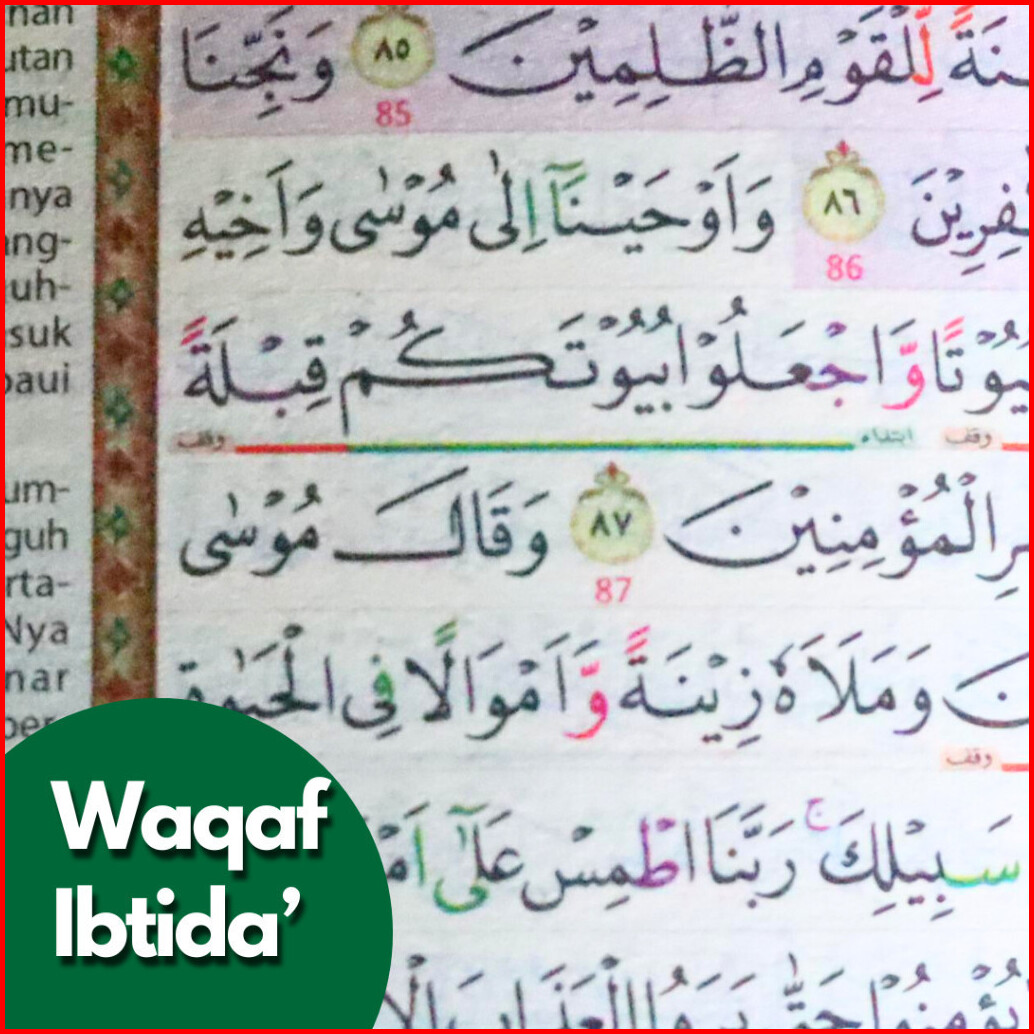 لِّلْقَوْمِ الظّٰلِمِيْنَ ٨٥ وَنَجِّنَا
85
٨٦ وَاَوْحَيْنَآ اِلٰى مُوْسٰى وَاَخِيْهِ
86
وَّاجْعَلُوْا بُيُوْتَكُمْ قِبْلَةً
وقف ابتداء وقف
الْمُؤْمِنِيْنَ ٨٧ وَقَالَ مُوْسٰى
87
وَمَلَاَهٗ زِيْنَةً وَّاَمْوَالًا فِى الْحَيٰوةِ
وقف
سَبِيْلِكَ ۚ رَبَّنَا اطْمِسْ عَلٰٓى
يُؤْمِنُوْا حَتّٰى يَرَوُا الْعَذَابَ
utan
mu-
me-
nya
ang-
uh-
suk
um-
guh
rta-
Nya
nar
Waqaf
Ibtida’